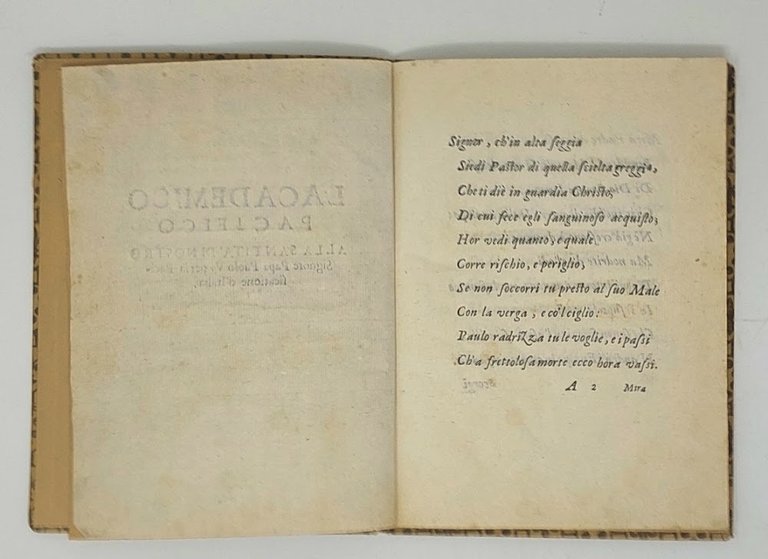 L'ACADEMICO
PACIFICO
ALLA SANTITA' DI NOSTRO
Signore Papa Paolo V. per la Paci-
ficatione d'Italia.
Signor, ch'in alta seggia
Siedi Pastor di questa scielta greggia,
Che ti diè in guardia Christo;
Di cui fece egli sanguinoso acquisto;
Hor vedi quanto, e quale
Corre rischio, e periglio,
Se non soccorri tu presto al suo Male
Con la verga, e co'l ciglio:
Paulo radrizza tu le voglie, e i passi
Ch'a frettolosa morte ecco hora vassi.
A 2 Mira